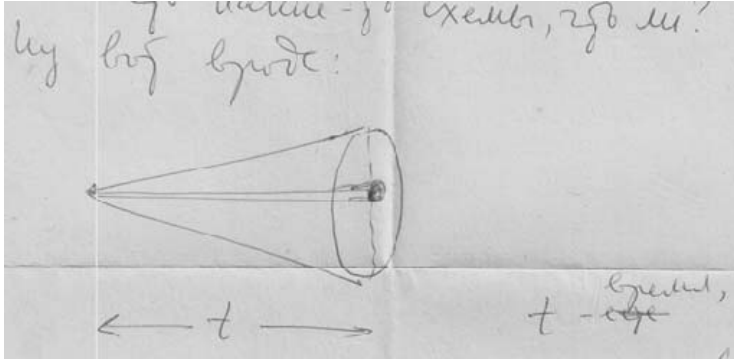 какие-то схемы, что ли?
Ну вот вроде:
t
t - время,